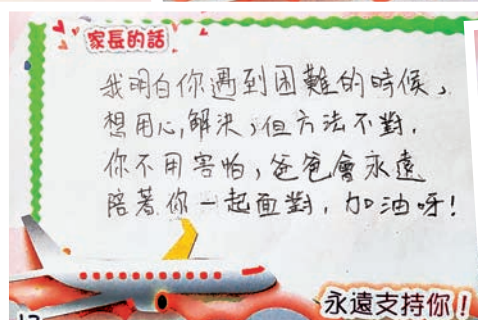 家長的話
我明白你遇到困難的時候，
想用心解決，但方法不對，
你不用害怕，爸爸會永遠
陪著你一起面對，加油呀！
永遠支持你！